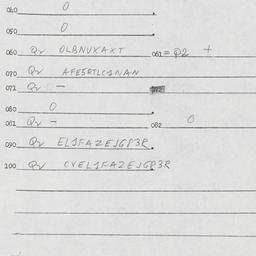 040 0
050 0
060 Qv OLBNUXAXT 061 = P2 +
070 Qv AFE5RTLC1NAN
071 Qv 0 -
080 0
081 Qv - 082 0
090 Qv EL1FAZEJG83R
100 Qv CVEL1FAZEJG83R